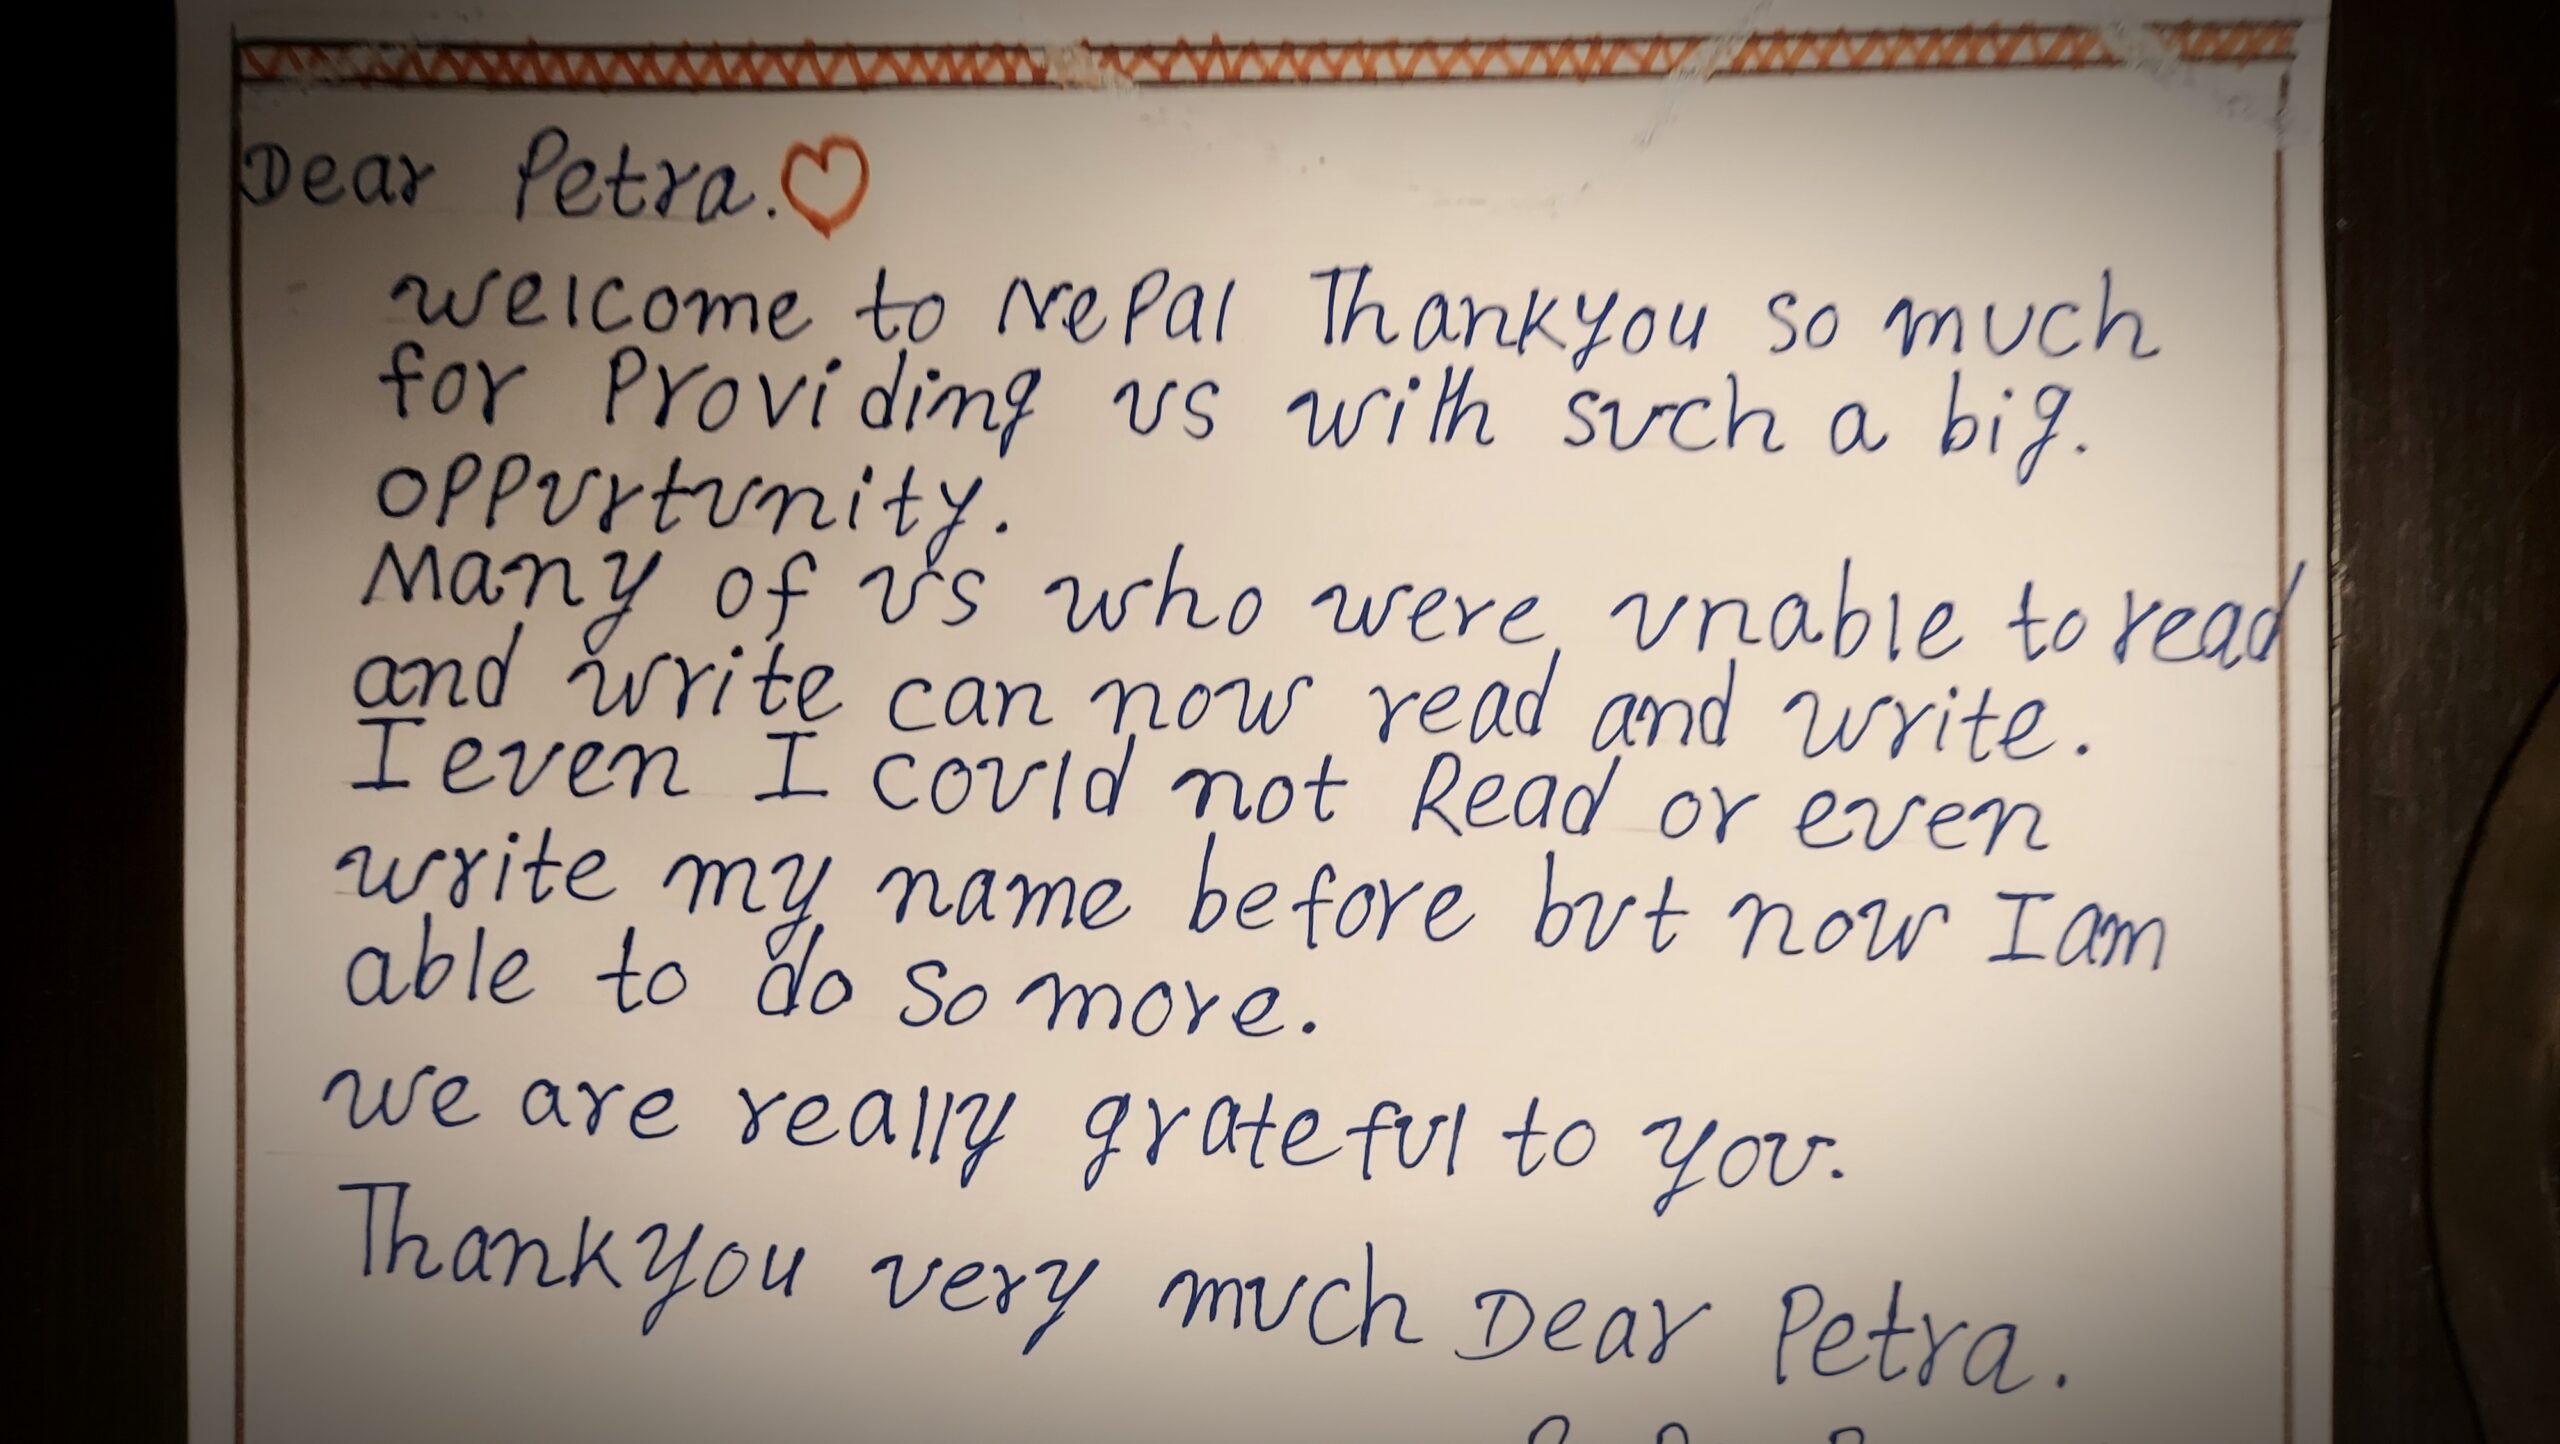 Dear Petra.
welcome to Nepal Thankyou so much
for Providing us with such a big.
oppurtunity.
Many of us who were unable to read
and write can now read and write.
I even I could not Read or even
write my name before but now I am
able to do so more.
we are really grateful to you.
Thankyou very much Dear Petra.